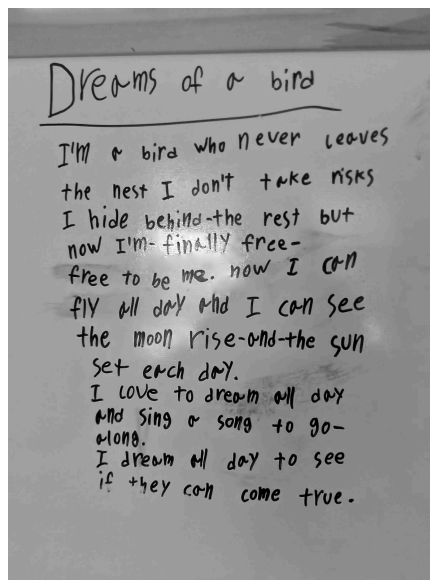 Dreams of a bird
I'm a bird who never leaves
the nest I don't take risks
I hide behind-the rest but
now I'm-finally free-
free to be me. now I can
fly all day and I can see
the moon rise-and-the sun
set each day.
I love to dream all day
and sing a song to go-
along.
I dream all day to see
if they can come true.